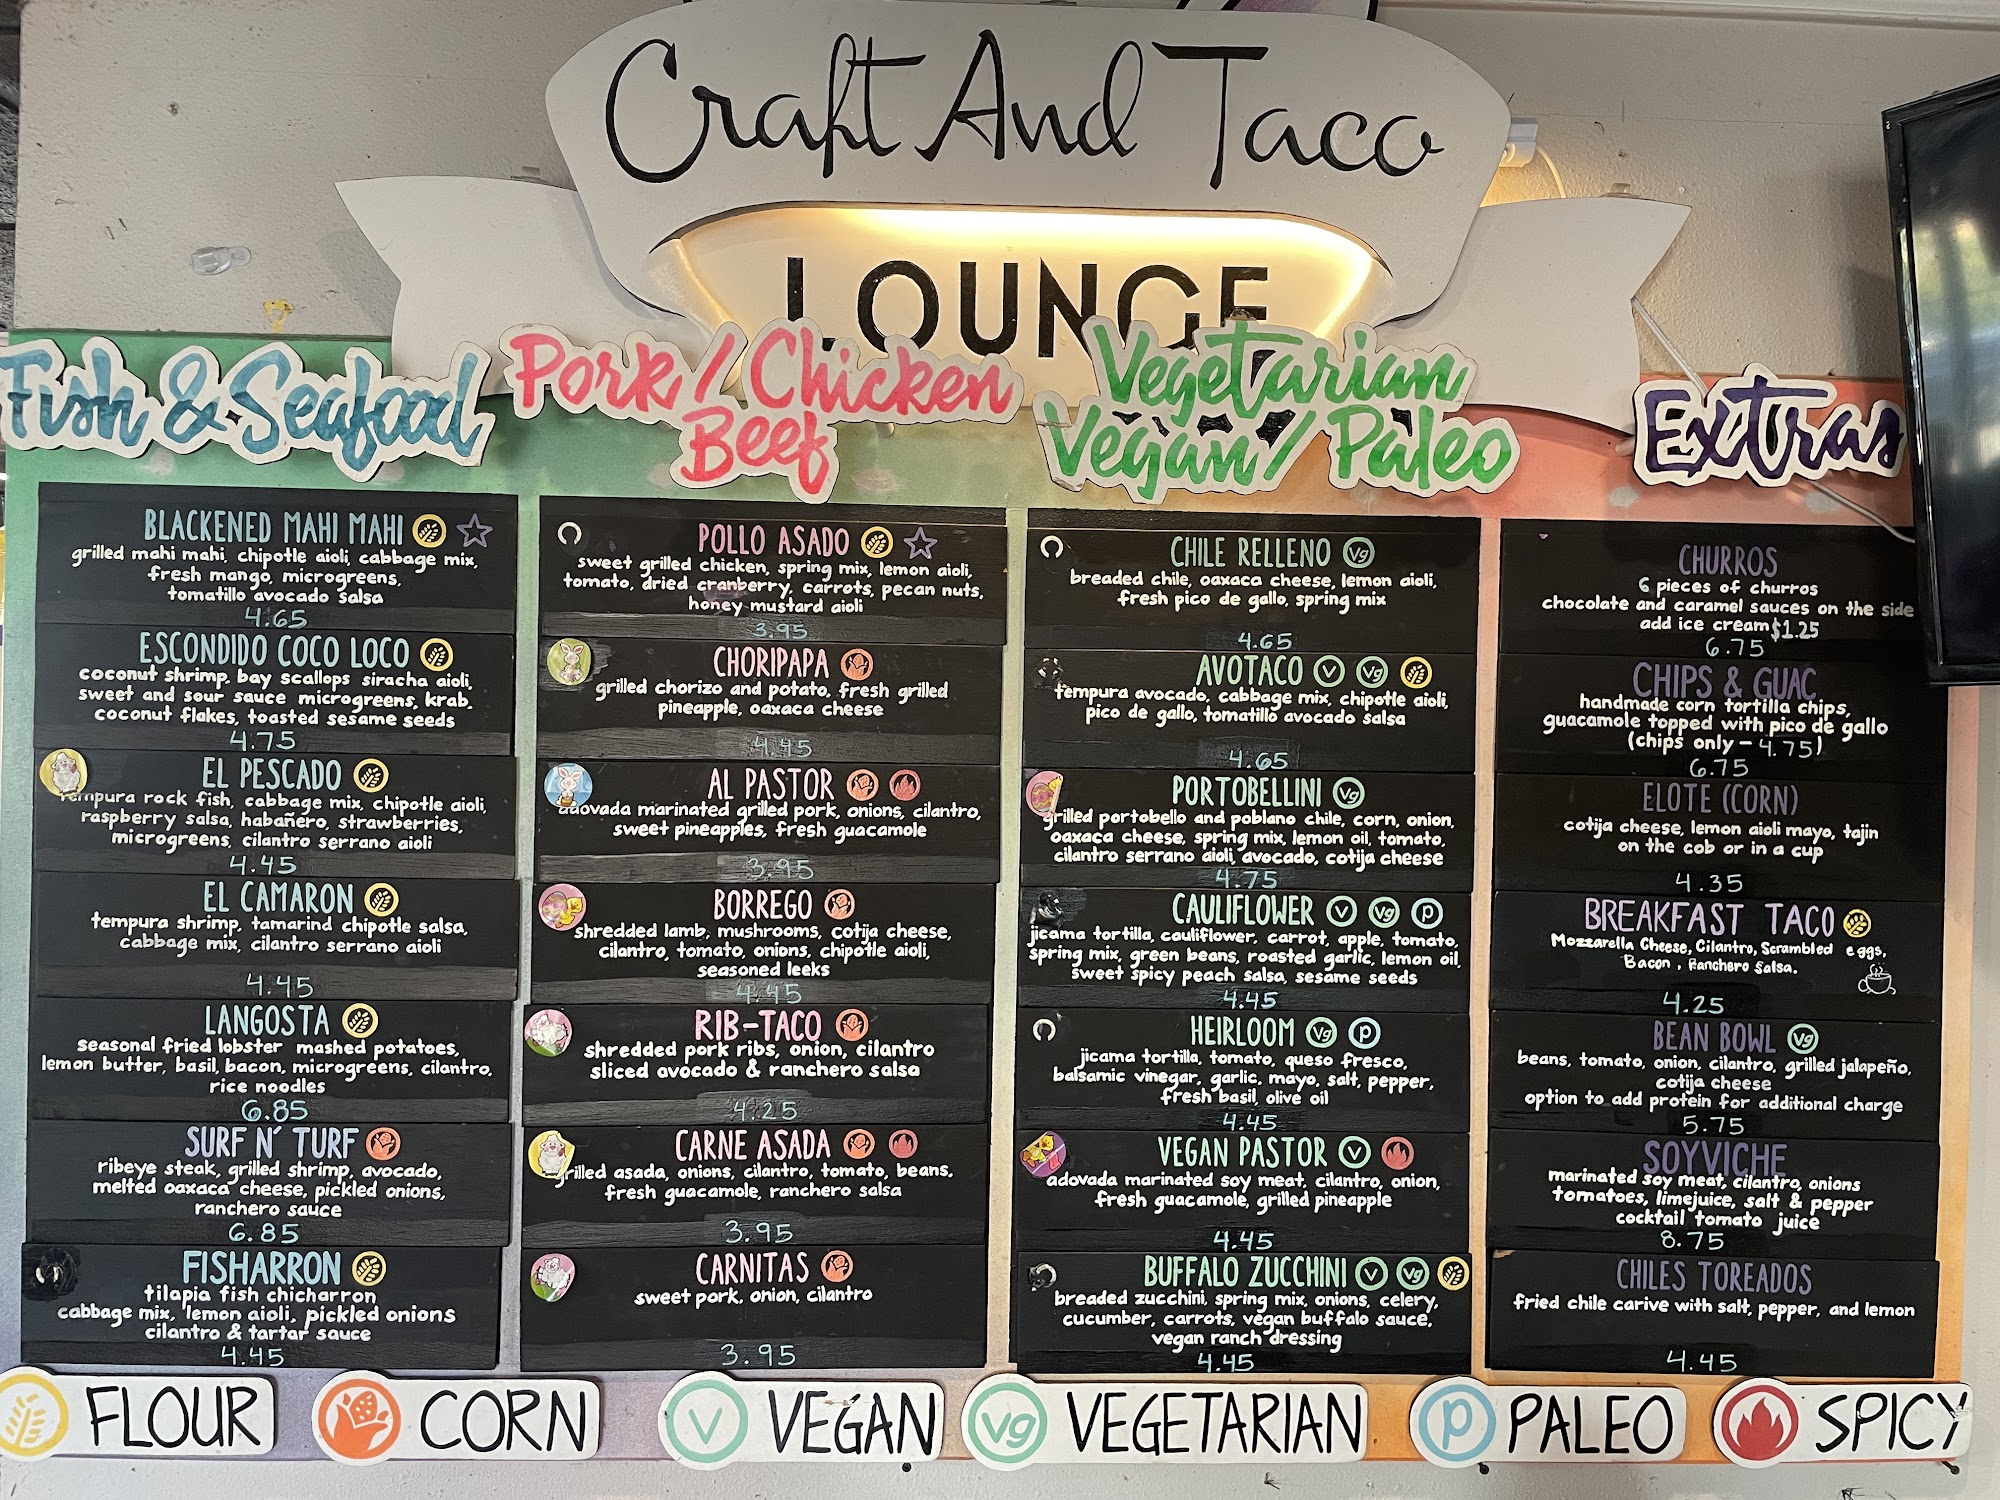 Craft And Taco
LOUNGE
Fish & Seafood
BLACKENED MAHI MAHI
grilled mahi mahi, chipotle aioli, cabbage mix,
fresh mango, microgreens,
tomatillo avocado salsa
4.65
ESCONDIDO COCO LOCO
coconut shrimp, bay scallops siracha aioli,
sweet and sour sauce microgreens, krab,
coconut flakes, toasted sesame seeds
4.75
EL PESCADO
tempura rock fish, cabbage mix, chipotle aioli,
raspberry salsa, habañero, strawberries,
microgreens, cilantro serrano aioli
4.45
EL CAMARON
tempura shrimp, tamarind chipotle salsa,
cabbage mix, cilantro serrano aioli
4.45
LANGOSTA
seasonal fried lobster mashed potatoes,
lemon butter, basil, bacon, microgreens, cilantro,
rice noodles
6.85
SURF N' TURF
ribeye steak, grilled shrimp, avocado,
melted oaxaca cheese, pickled onions,
ranchero sauce
6.85
FISHARRON
tilapia fish chicharron
cabbage mix, lemon aioli, pickled onions
cilantro & tartar sauce
4.45
Pork / Chicken
Beef
POLLO ASADO
sweet grilled chicken, spring mix, lemon aioli,
tomato, dried cranberry, carrots, pecan nuts,
honey mustard aioli
3.95
CHORIPAPA
grilled chorizo and potato, fresh grilled
pineapple, oaxaca cheese
4.45
AL PASTOR
adovada marinated grilled pork, onions, cilantro,
sweet pineapples, fresh guacamole
3.95
BORREGO
shredded lamb, mushrooms, cotija cheese,
cilantro, tomato, onions, chipotle aioli,
seasoned leeks
4.45
RIB-TACO
shredded pork ribs, onion, cilantro
sliced avocado & ranchero salsa
4.25
CARNE ASADA
grilled asada, onions, cilantro, tomato, beans,
fresh guacamole, ranchero salsa
3.95
CARNITAS
sweet pork, onion, cilantro
3.95
Vegetarian
Vegan / Paleo
CHILE RELLENO vg
breaded chile, oaxaca cheese, lemon aioli,
fresh pico de gallo, spring mix
4.65
AVOTACO v vg
tempura avocado, cabbage mix, chipotle aioli,
pico de gallo, tomatillo avocado salsa
4.65
PORTOBELLINI vg
grilled portobello and poblano chile, corn, onion,
oaxaca cheese, spring mix, lemon oil, tomato,
cilantro serrano aioli, avocado, cotija cheese
4.75
CAULIFLOWER v vg p
jicama tortilla, cauliflower, carrot, apple, tomato,
spring mix, green beans, roasted garlic, lemon oil,
sweet spicy peach salsa, sesame seeds
4.45
HEIRLOOM vg p
jicama tortilla, tomato, queso fresco,
balsamic vinegar, garlic, mayo, salt, pepper,
fresh basil, olive oil
4.45
VEGAN PASTOR v
adovada marinated soy meat, cilantro, onion,
fresh guacamole, grilled pineapple
4.45
BUFFALO ZUCCHINI v vg
breaded zucchini, spring mix, onions, celery,
cucumber, carrots, vegan buffalo sauce,
vegan ranch dressing
4.45
Extras
CHURROS
6 pieces of churros
chocolate and caramel sauces on the side
add ice cream $1.25
6.75
CHIPS & GUAC
handmade corn tortilla chips,
guacamole topped with pico de gallo
(chips only - 4.75)
6.75
ELOTE (CORN)
cotija cheese, lemon aioli mayo, tajin
on the cob or in a cup
4.35
BREAKFAST TACO
Mozzarella Cheese, Cilantro, Scrambled eggs,
Bacon, Ranchero Salsa.
4.25
BEAN BOWL vg
beans, tomato, onion, cilantro, grilled jalapeño,
cotija cheese
option to add protein for additional charge
5.75
SOYVICHE
marinated soy meat, cilantro, onions
tomatoes, limejuice, salt & pepper
cocktail tomato juice
8.75
CHILES TOREADOS
fried chile carive with salt, pepper, and lemon
4.45
FLOUR
CORN
v VEGAN
vg VEGETARIAN
p PALEO
SPICY